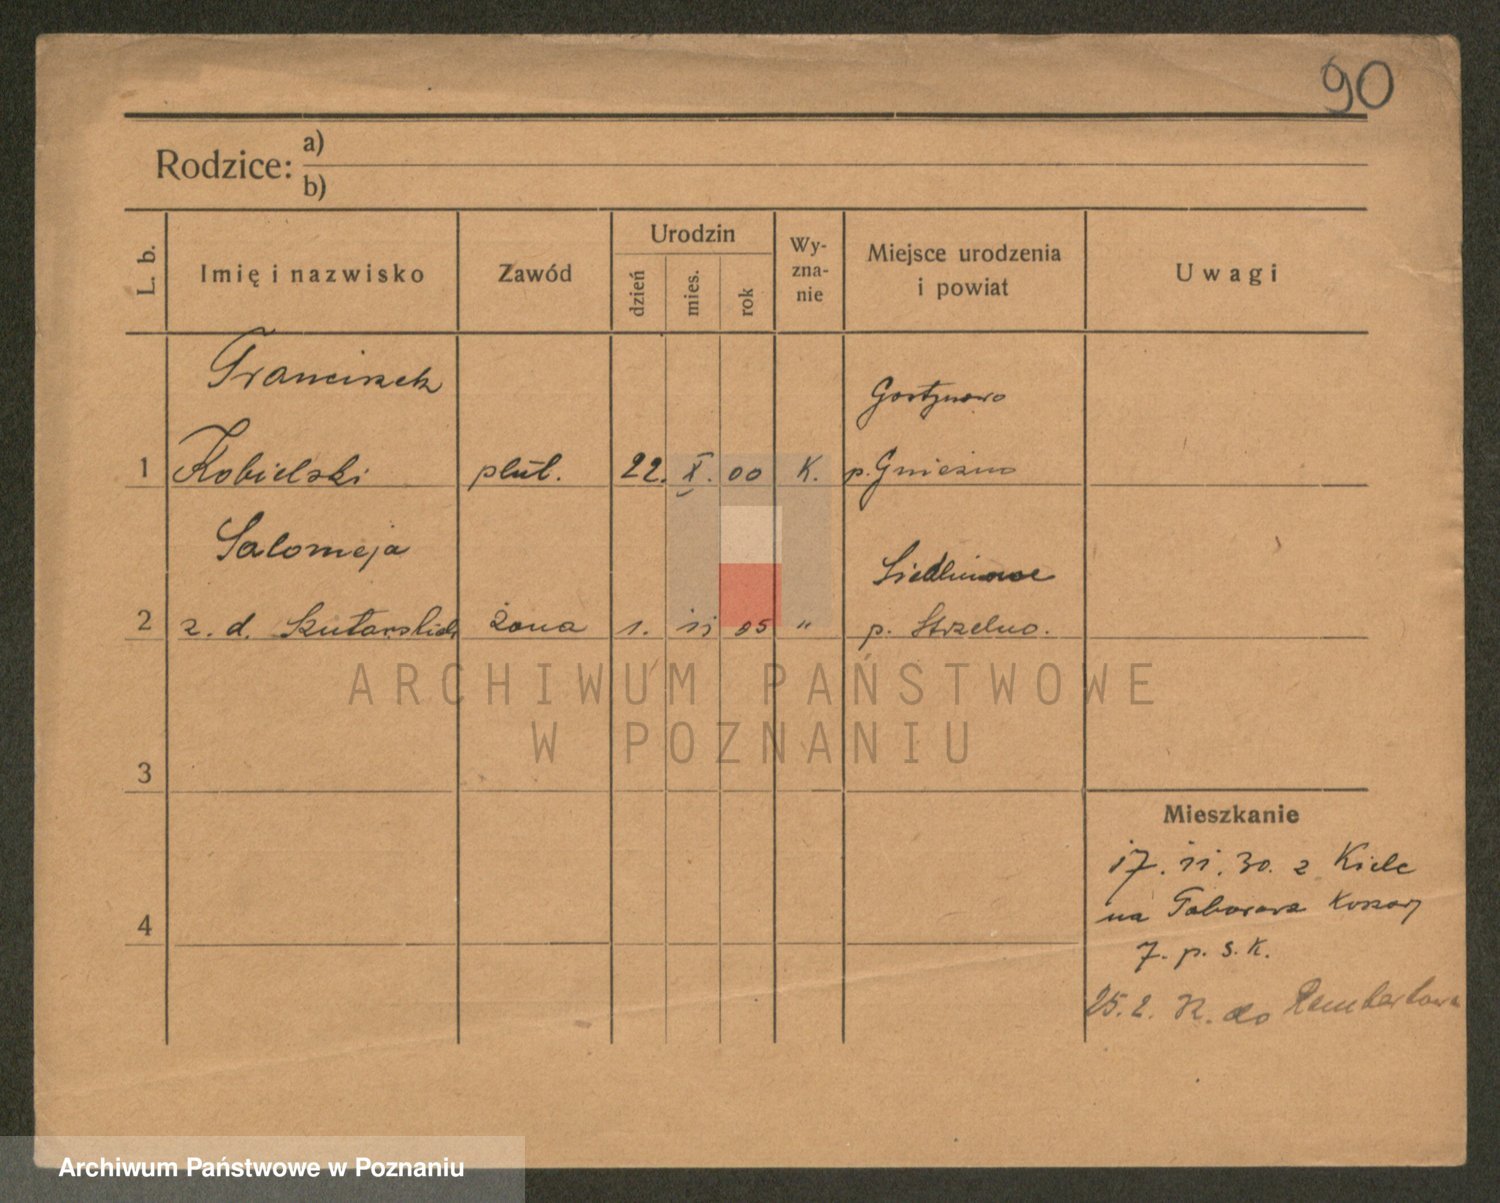 90
Rodzice: a)
b)
L. b.
Imię i nazwisko
Zawód
Urodzin
dzień
mies.
rok
Wy-
zna-
nie
Miejsce urodzenia
i powiat
Uwagi
Franciszek
Gostynowo
1 Kobielski plut. 22. X. 00 K. p. Gniezno
Salomeja
2 z. d. Szutarskich żona 1. 11 05 " p. Strzelno.
3
Mieszkanie
17. 11. 30. z Kielc
4
na Taborowa Koszary
7. p. s. K.
25. 2. do Rembertowa
ARCHIWUM PAŃSTWOWE
W POZNANIU
Archiwum Państwowe w Poznaniu